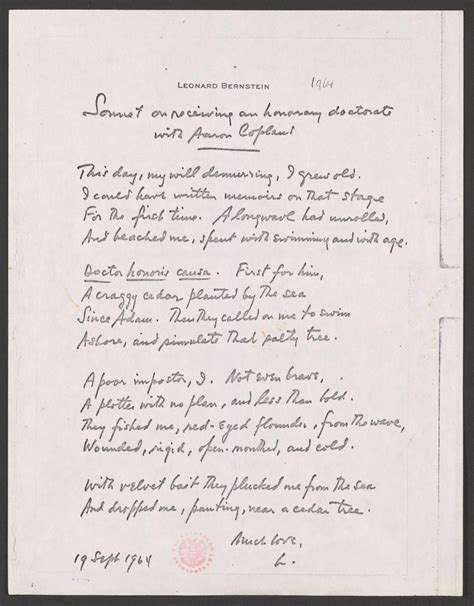 LEONARD BERNSTEIN
1964
Sonnet on receiving an honorary doctorate
with Aaron Copland
This day, my will demurring, I grew old.
I could have written memoirs on that stage
For the first time. A long wave had unrolled,
And beached me, spent with swimming and with age.
Doctor honoris causa. First for him,
A craggy cedar planted by the sea
Since Adam. Then they called on me to swim
Ashore, and simulate that salty tree.
A poor impostor, I. Not even brave,
A plotter with no plan, and less than bold.
They fished me, red-eyed flounder, from the wave,
Wounded, rigid, open-mouthed, and cold.
With velvet bait they plucked me from the sea
And dropped me, panting, near a cedar tree.
Much love,
L.
19 Sept 1964